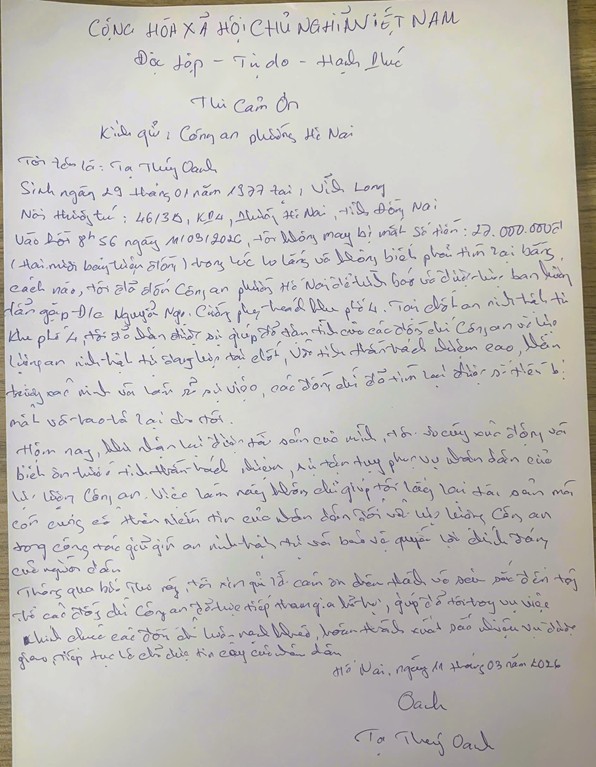 CỘNG HÒA XÃ HỘI CHỦ NGHĨA VIỆT NAM
Độc lập - Tự do - Hạnh Phúc
Thư Cảm Ơn
Kính gửi: Công an phường Hố Nai
Tôi tên là: Tạ Thúy Oanh
Sinh ngày 29 tháng 01 năm 1977 tại: Vĩnh Long
Nơi thường trú: 46/3B, KP4, Phường Hố Nai, Tỉnh Đồng Nai
Vào hồi 8h56 ngày 11/03/2026, tôi không may bị mất số tiền: 27.000.000đ
(Hai mươi bảy triệu đồng) trong lúc lo lắng và không biết phải tìm lại bằng
cách nào, tôi đã đến Công an phường Hố Nai để trình báo và được hướng
dẫn gặp Đ/c Nguyễn Ngọc Cường phụ trách khu phố 4. Tại chốt an ninh trật tự
khu phố 4, tôi đã nhận được sự giúp đỡ tận tình của các đồng chí Công an và lực
lượng an ninh trật tự đang trực tại chốt, Với tinh thần trách nhiệm cao, khẩn
trương xác minh và làm rõ sự việc, các đồng chí đã tìm lại được số tiền bị
mất và trao trả lại cho tôi.
Hôm nay, khi nhận lại được tài sản của mình, tôi vô cùng xúc động và
biết ơn trước tinh thần trách nhiệm, sự tận tụy phục vụ nhân dân của
lực lượng Công an. Việc làm này không chỉ giúp tôi lấy lại tài sản mà
còn củng cố thêm niềm tin của nhân dân đối với lực lượng Công an
trong công tác giữ gìn an ninh trật tự và bảo vệ quyền lợi chính đáng
của người dân.
Thông qua bức thư này, tôi xin gửi lời cảm ơn chân thành và sâu sắc đến tập
thể các đồng chí Công an đã trực tiếp tham gia hỗ trợ, giúp đỡ tôi trong vụ việc
Kính chúc các đồng chí luôn mạnh khỏe, hoàn thành xuất sắc nhiệm vụ được
giao, tiếp tục là chỗ dựa tin cậy của nhân dân
Hố Nai, ngày 11 tháng 03 năm 2026
Oanh
Tạ Thúy Oanh